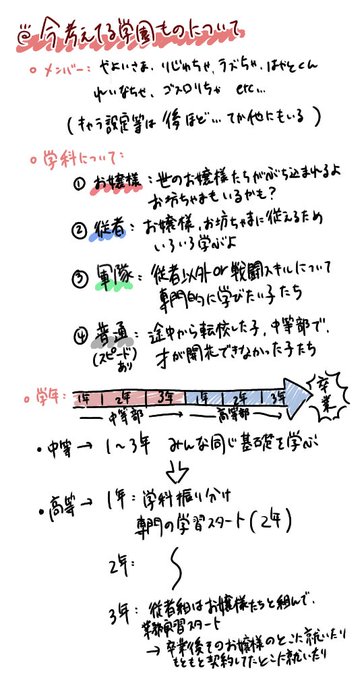 今考えてる学園ものについて
○メンバー：やよいさま、りじゅちゃ、ラズちゃ、はやとくん
れいなちゃ、ゴスロリちゃ etc…
(キャラ設定等は後ほど…てか他にもいる)
○学科について：
① お嬢様：世のお嬢様たちがぶち込まれるよ
お坊ちゃまもいるかも？
② 従者：お嬢様、お坊ちゃまに従えるため
いろいろ学ぶよ
③ 軍隊：従者以外or戦闘スキルについて
専門的に学びたい子たち
④ 普通：途中から転校した子、中等部で、
(スピードあり) 才が開花できなかった子たち
○学年：
1年 2年 3年 1年 2年 3年 卒業
中等部 高等部
・中等→ 1～3年 みんな同じ基礎を学ぶ
・高等→ 1年：学科振り分け
専門の学習スタート(2年)
2年：
3年：従者組はお嬢様たちと組んで、
実習スタート
→卒業後そのお嬢様のとこに就いたり
もともと契約してたとこに就いたり